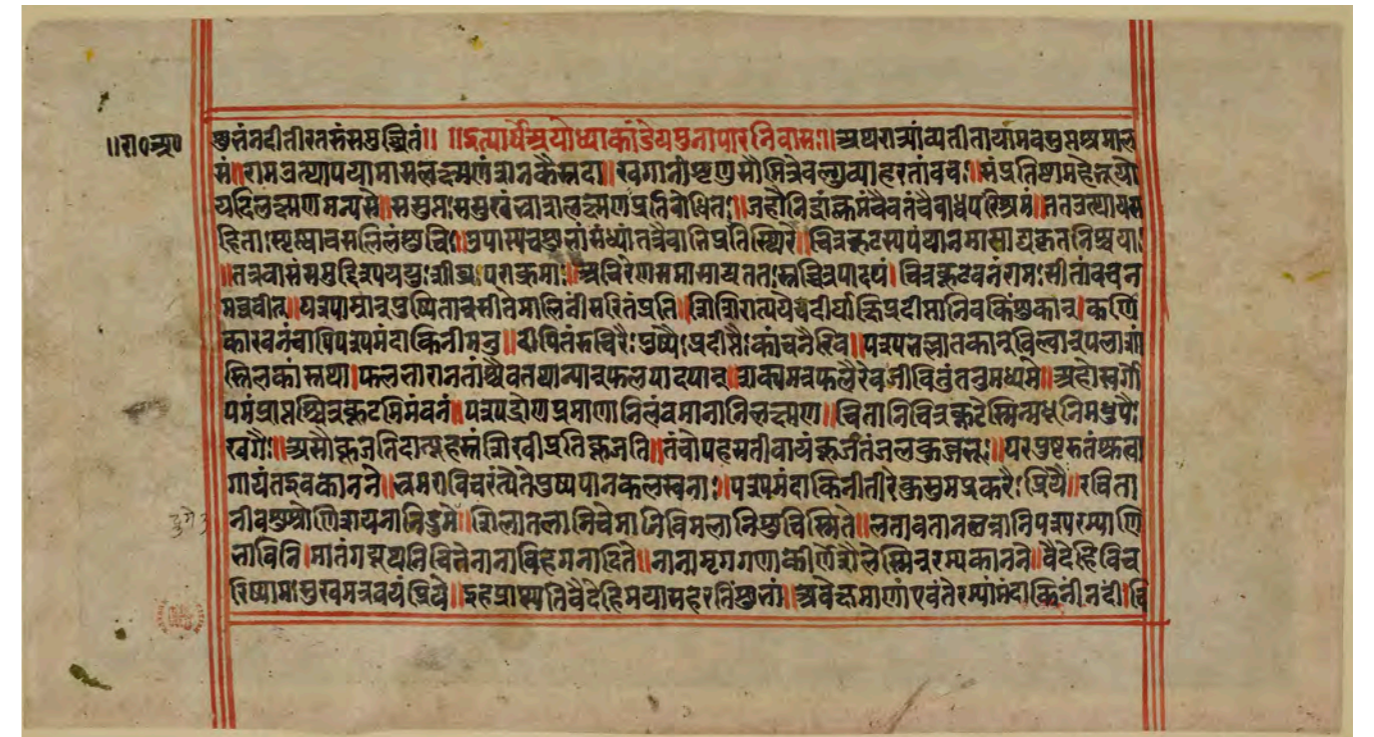 ॥रा०अ०
शुभंनदीतीरतरुंसमुच्छ्रितं॥ ॥इत्यार्षेअयोध्याकांडेयमुनापारनिवासः॥अथरात्र्यांव्यतीतायामवसुप्तमथाल
सं॥रामउत्थापयामासलक्ष्मणंशनकैस्तदा॥खगानांशृणुसौमित्रेवल्गुव्याहरतांवचः॥संप्रतिष्टामहेत्यथो
यदिलक्ष्मणमन्यसे॥ससुप्तःससुखंभ्रात्रालक्ष्मणःप्रतिबोधितः॥जहौनिद्रांक्लमंचैवतंचैवाध्वपरिश्रमं॥ततउत्थायस
हिताःस्पृष्ट्वाचसलिलंशुचि॥उपास्यचशुभांसंध्यांतत्रैवाभिप्रतस्थिरे॥चित्रकूटस्यपंथानमासाद्यकृतनिश्चयाः
॥तत्रवासंसमुद्दिश्यययुःशीघ्रपराक्रमाः॥अचिरेणसमासाद्यततस्तच्चित्रपादपं।चित्रकूटवनंरामःसीतांवचन
मब्रवीत्॥पश्यपाम्रान्पुष्पितान्सीतेमालिनींसरितंप्रति॥शिशिरात्ययेदीर्घाक्षिप्रदीप्तानिवकिंशुकान्।कर्णि
कारवनंचापिपश्यमंदाकिनीमनु॥दीपितंरुचिरैःपुष्पैःप्रदीप्तैःकांचनैरिव॥पश्यभल्लातकान्बिल्वान्पलाशां
स्तिलकांस्तथा।फलभारानतांश्चैवतथान्यान्फलपादपान्॥शक्यमत्रफलैरेवजीवितुंतनुमध्यमे॥अहोस्वर्गो
पमंप्राप्तश्चित्रकूटमिमंवनं॥पश्यद्रोणप्रमाणानिलंबमानानिलक्ष्मण॥चितानिचित्रकूटेस्मिन्मधूनिमधुपैः
खगैः॥असौकूजतिदात्यूहस्तंशिखीप्रतिकूजति॥तंचोपहसतीवायंकूजंतंजलकुक्कुभः॥परपुष्टरुतंश्रुत्वा
गायंतइवकानने॥भ्रमराविचरंत्येतेपुष्पपानकलस्वनाः॥पश्यमंदाकिनीतीरेकुसुमप्रकरैःप्रिये॥रचिता
नीवशुश्रोणिशयनानिद्रुमैः॥शिलातलानिचेमानिविमलानिशुचिस्मिते॥लतावतानछन्नानिपश्यरम्याणि
भाविनि।मातंगयूथनिचितेनानाविहगनादिते॥नानामृगगणाकीर्णेशैलेस्मिन्रम्यकानने॥वैदेहिविच
रिष्यामःसुखमत्रवयंप्रिये॥इहप्राप्स्यतिवैदेहिमयासहरतिंशुभां॥अवेक्षमाणांएवंतेरम्यांमंदाकिनींनदीं।चि